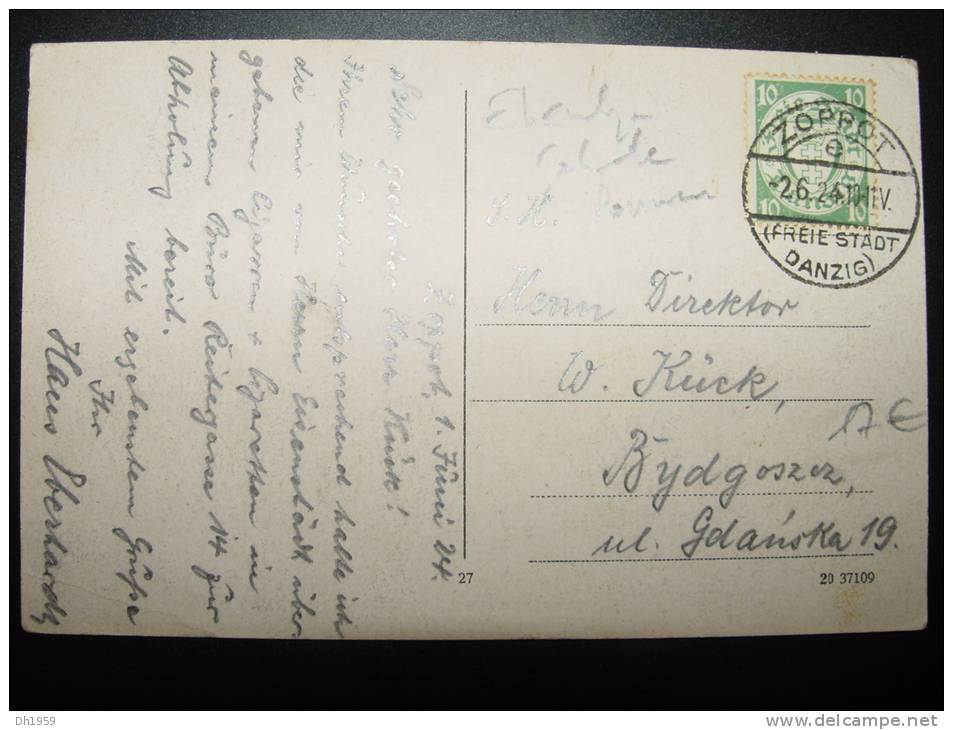 Zoppot, 1. Juni 24.
Sehr geehrter Herr Kück!
Ihrem Wunsche entsprechend halte ich
die mir von Herrn Eisenstädt über-
gebenen Cigarren + Cigaretten in
meinem Büro Reitergasse 14 zur
Abholung bereit.
Mit ergebenstem Gruße
Ihr
Hans Eberhardt
10 10
10 10
ZOPPOT
e
-2.6.24.10-11V.
(FREIE STADT
DANZIG)
Herrn Direktor
W. Kück,
Bydgoszcz,
ul. Gdańska 19.
17 €
27
20 37109
Dh1959
delcampe.net